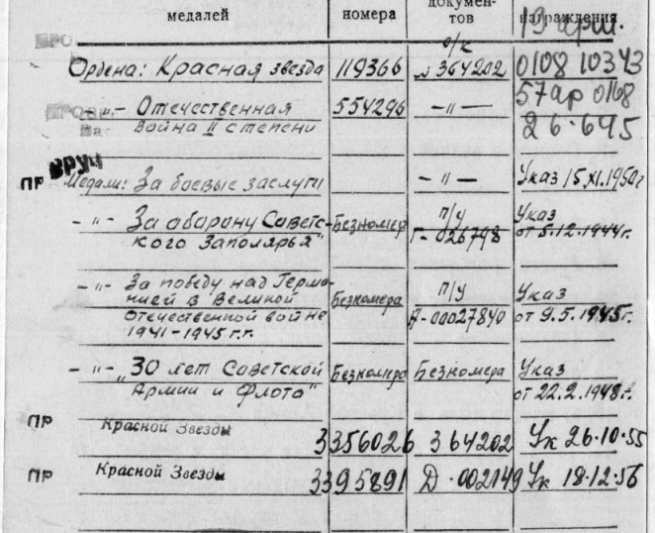 докумен-
медалей номера тов награждения
19 армии.
о/к
Ордена: Красная звезда 119366 № 364202 0108 10343
57 ар 0168
-"- Отечественная 554296 -"-
война II степени 26.695
ПР ВРУЧ
Медали: За боевые заслуги -"- Указ 15.XI.1950г
-"- За оборону Советс- Безномера п/у Указ
кого Заполярья" Г-026798 от 5.12.1944г.
-"- За победу над Герма- п/у
нией в Великой Безномера Указ
Отечественной войне А-00027840 от 9.5.1945г.
1941-1945 г.г.
-"- „30 лет Советской Безномера Безномера Указ
Армии и Флота" от 22.2.1948г.
ПР Красной Звезды 3356026 364202 Ук 26.10.55
ПР Красной Звезды 3395891 Д.002149 Ук 18.12.56